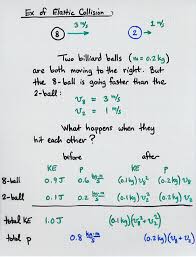 Ex of Elastic Collision :
3 m/s
1 m/s
8
2
Two billiard balls (m = 0.2 kg)
are both moving to the right. But
the 8-ball is going faster than the
2-ball:
v₈ = 3 m/s
v₂ = 1 m/s
What happens when they
hit each other?
before after
KE p KE p
8-ball 0.9 J 0.6 kg·m/s (0.1 kg) v₈² (0.2 kg) v₈
2-ball 0.1 J 0.2 kg·m/s (0.1 kg) v₂² (0.2 kg) v₂
total KE 1.0 J (0.1 kg)(v₈² + v₂²)
total p 0.8 kg·m/s (0.2 kg)(v₈ + v₂)